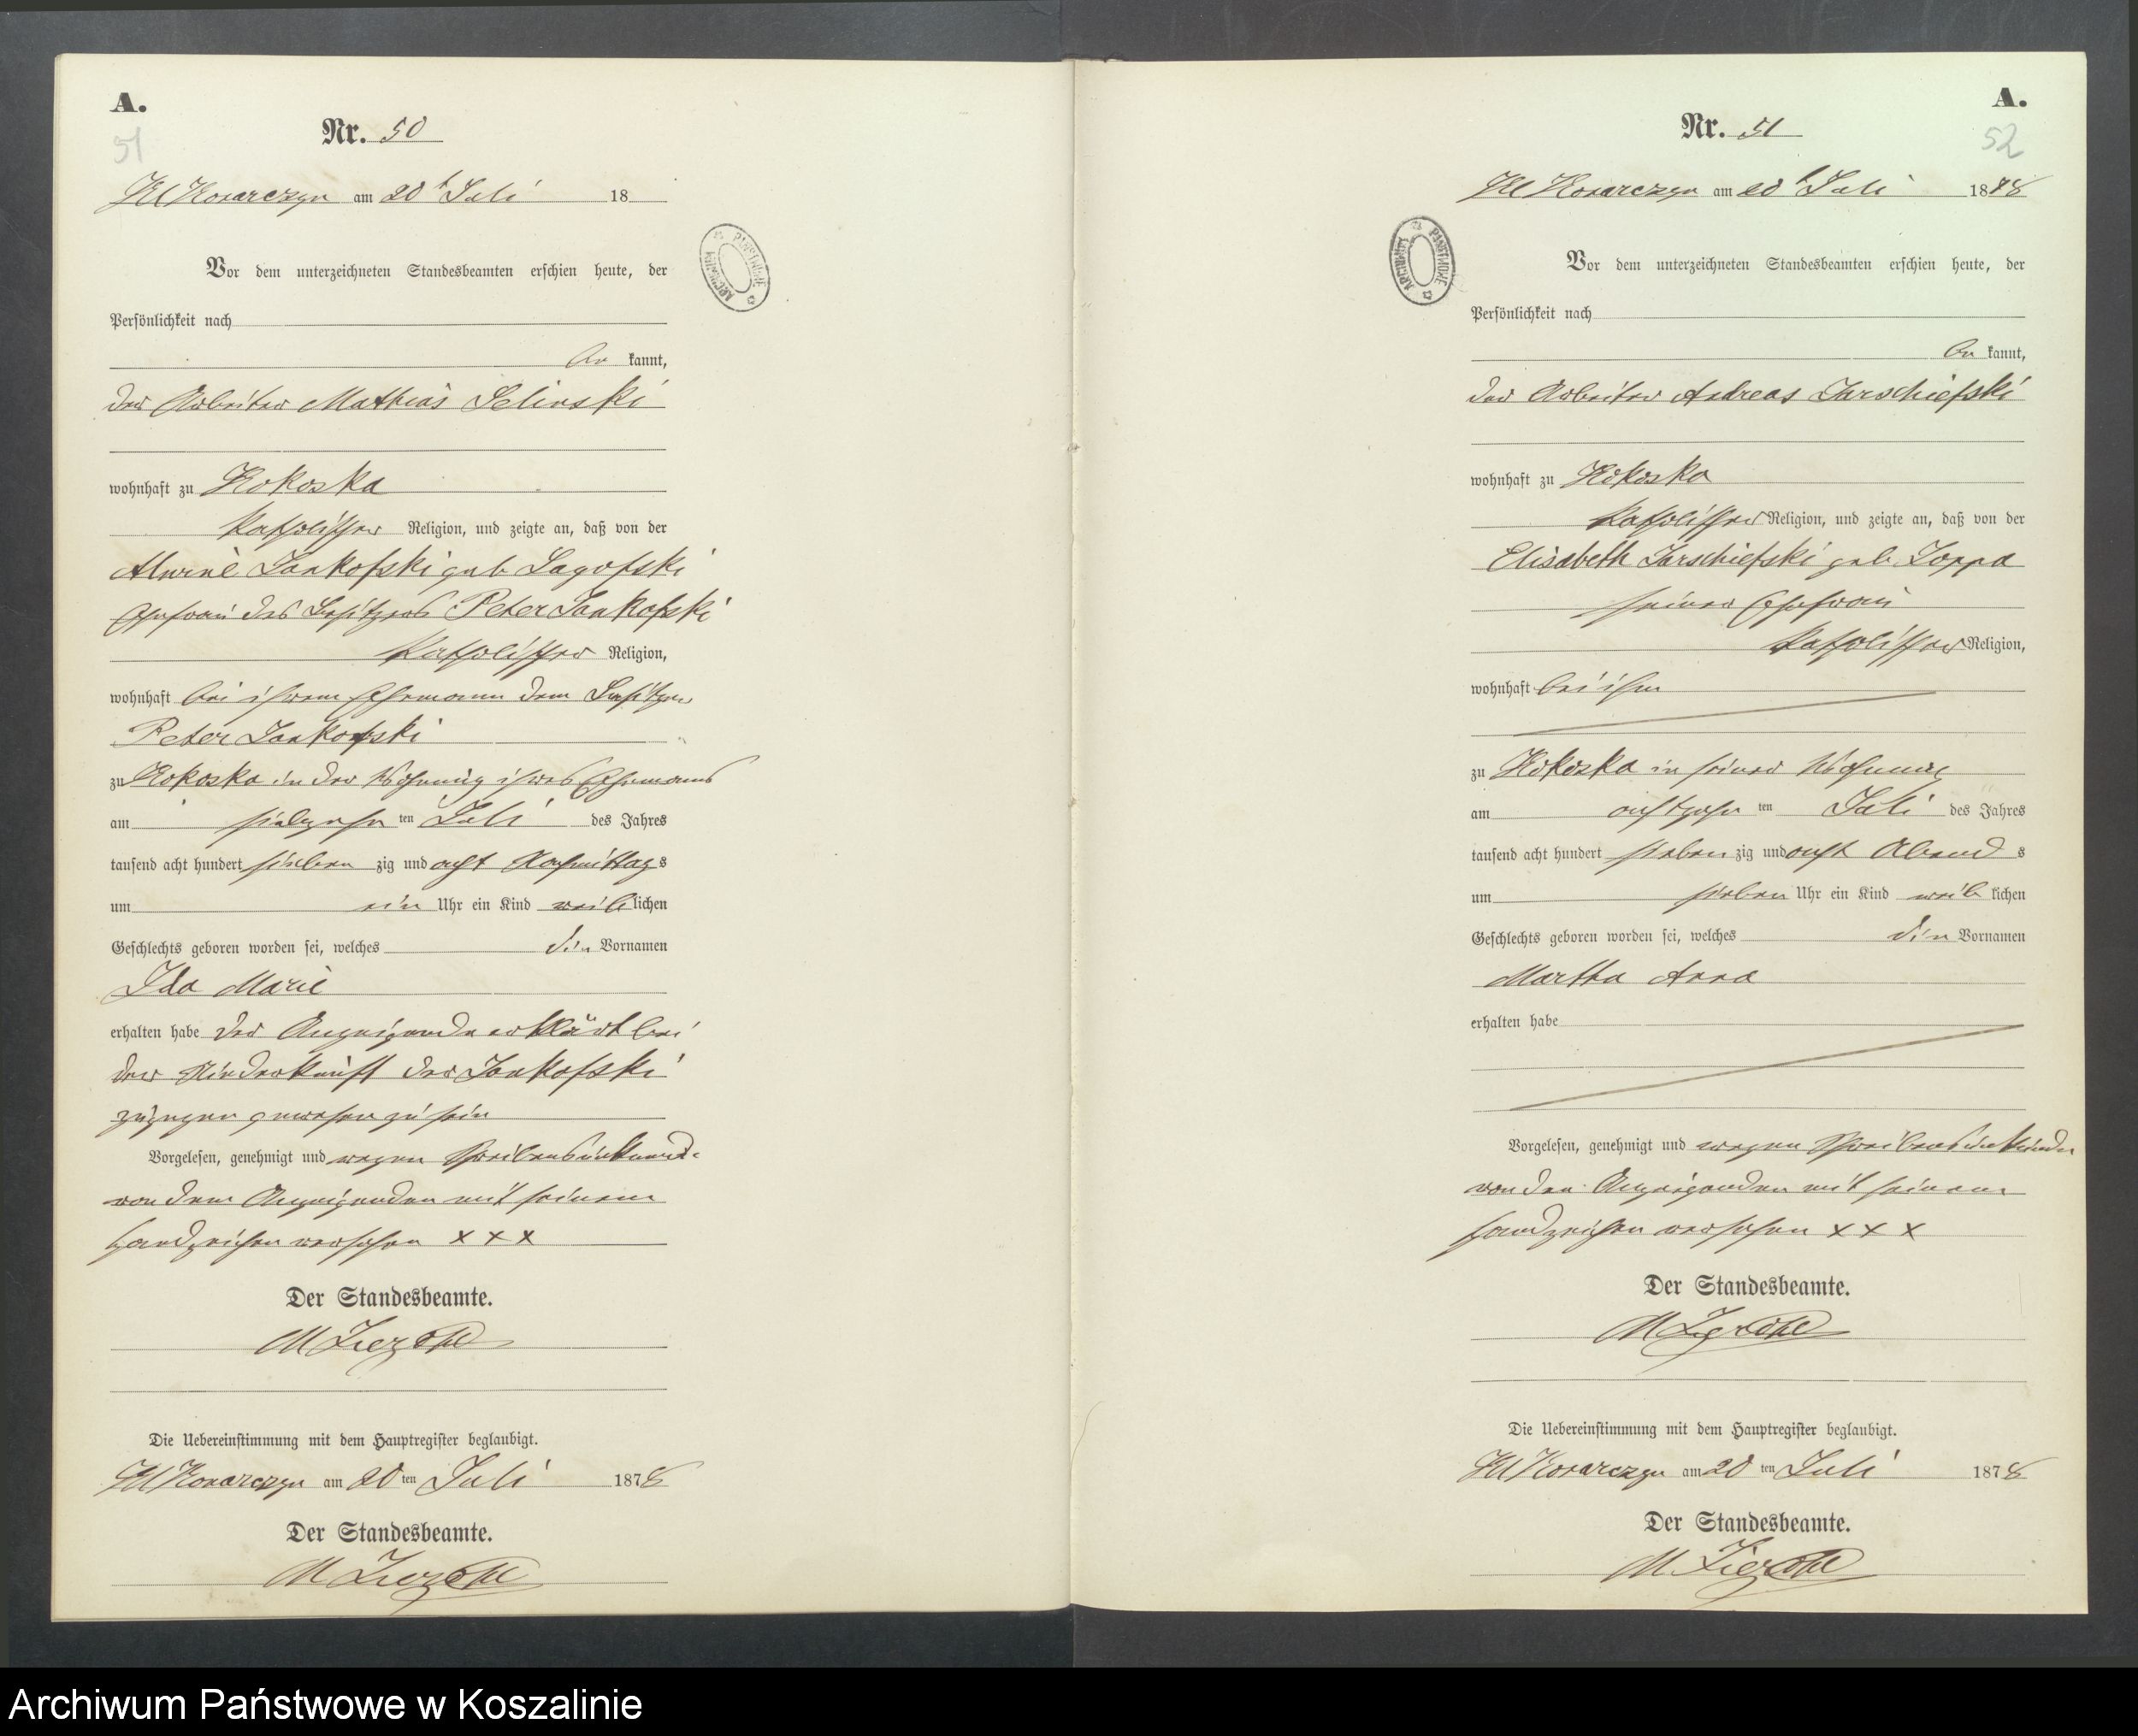 A.
51
Nr. 50
Kl Konarczyn am 20t Juli 18
Vor dem unterzeichneten Standesbeamten erschien heute, der
Persönlichkeit nach
be kannt,
der Arbeiter Mathias Selinski
wohnhaft zu Kokoska
katholischer Religion, und zeigte an, daß von der
Jankofski geb
Ehefrau des Besitzers Peter Jankofski
katholischer Religion,
wohnhaft bei ihrem Ehemann dem Besitzer
Peter Jankofski
zu Kokoska in der Wohnung ihres Ehemanns
am siebzehn ten Juli des Jahres
tausend acht hundert sieben zig und acht Nachmittag s
um ein Uhr ein Kind weib lichen
Geschlechts geboren worden sei, welches die Vornamen
Ida Marie
erhalten habe der Anzeigende erklärt bei
der Niederkunft der Jankofski
zugegen gewesen zu sein
Vorgelesen, genehmigt und wegen Schreibensunkunde
von dem Anzeigenden mit seinem
Handzeichen versehen x x x
Der Standesbeamte.
M
Die Uebereinstimmung mit dem Hauptregister beglaubigt.
Kl Konarczyn am 20 ten Juli 1878
Der Standesbeamte.
M
ARCHIWUM PAŃSTWOWE
A.
52
Nr. 51
Kl Konarczyn am 20t Juli 1878
Vor dem unterzeichneten Standesbeamten erschien heute, der
Persönlichkeit nach
be kannt,
der Arbeiter Andreas Jarschiefski
wohnhaft zu Kokoska
katholischer Religion, und zeigte an, daß von der
Elisabeth Jarschiefski geb. Zoppa
seiner Ehefrau
katholischer Religion,
wohnhaft bei ihm
zu Kokoska in seiner Wohnung
am achtzehn ten Juli des Jahres
tausend acht hundert sieben zig und acht Abend s
um sieben Uhr ein Kind weib lichen
Geschlechts geboren worden sei, welches die Vornamen
Martha Anna
erhalten habe
Vorgelesen, genehmigt und wegen Schreibensunkunde
von dem Anzeigenden mit seinem
Handzeichen versehen x x x
Der Standesbeamte.
M
Die Uebereinstimmung mit dem Hauptregister beglaubigt.
Kl Konarczyn am 20 ten Juli 1878
Der Standesbeamte.
M
ARCHIWUM PAŃSTWOWE
Archiwum Państwowe w Koszalinie